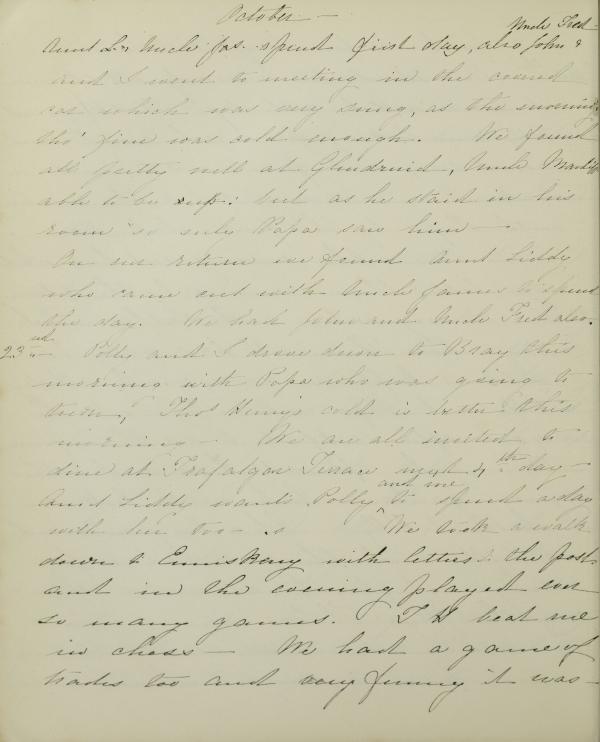 October —
Aunt L. & Uncle Jas. spent first day, also John & Uncle Fred —
and I went to meeting in the covered
car which was very snug, as the morning
tho' fine was cold enough. We found
all pretty well at Glendruid, Uncle
able to be up: but as he staid in his
room so only Papa saw him —
On our return we found Aunt Liddy
who came out with Uncle James to spend
the day. We had John and Uncle Fred also.
23rd Polly and I drove down to Bray this
morning with Papa who was going to
town, Thos Henry's cold is better this
morning — We are all invited to
dine at Trafalgar Terrace next 4th day —
Aunt Liddy wants Polly and me to spend a day
with her too — We took a walk
down to Enniskerry with letters to the post
and in the evening played ever
so many games. T H beat me
in chess — We had a game of
trades too and very funny it was —